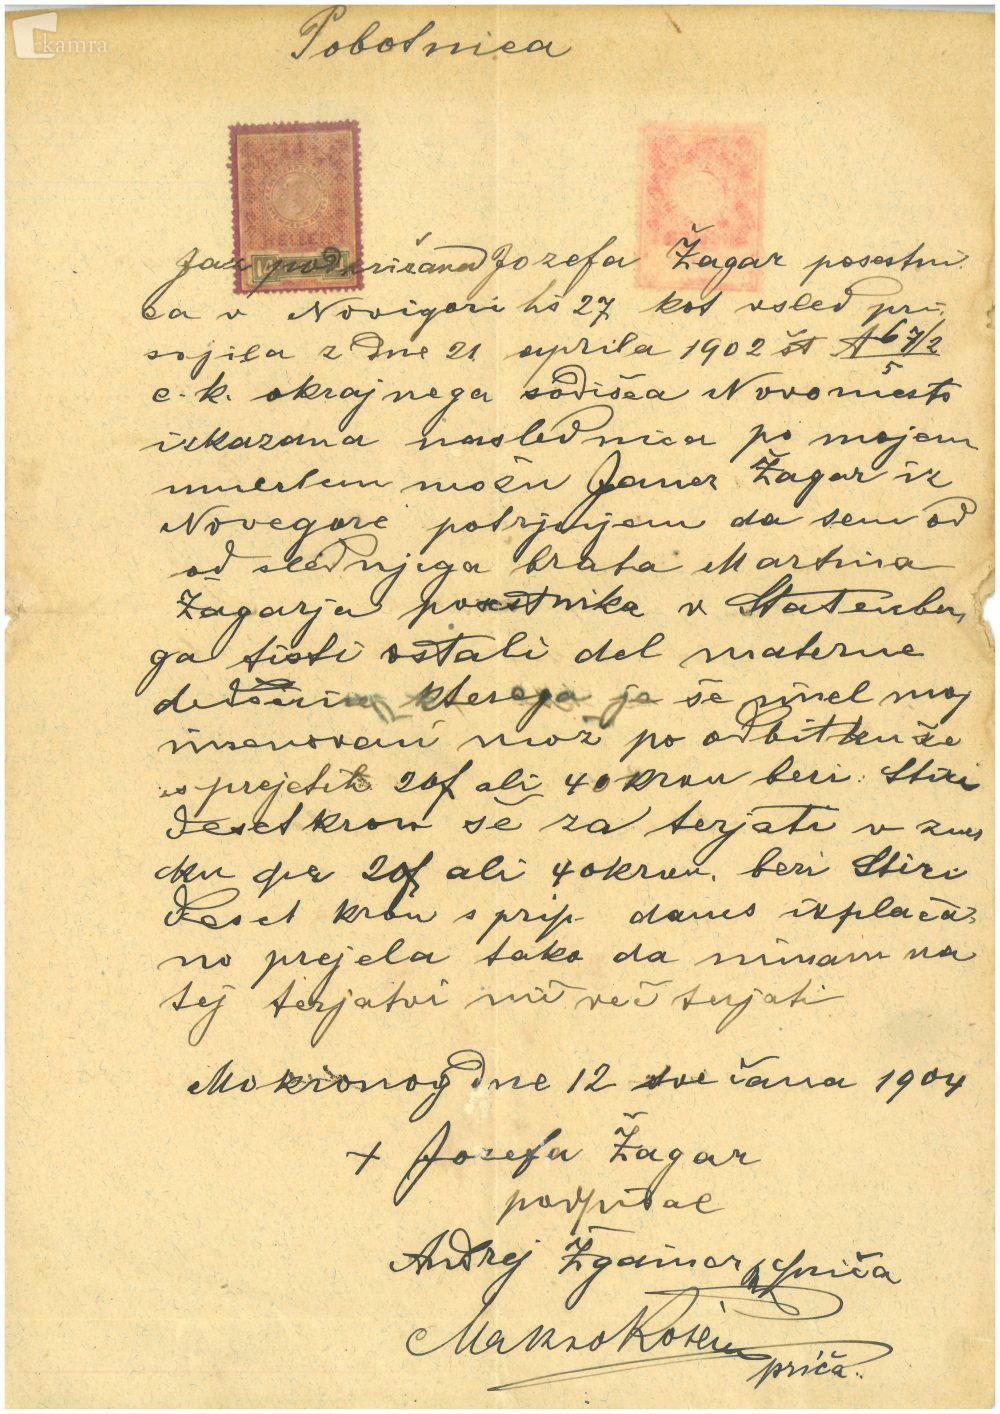 kamra
Pobotnica
HELLER
Jaz podkrižana Jozefa Žagar posestni
ca v Novigori hš 27 kot vsled pri
sojila z dne 21 aprila 1902 št A 67/2
5
c. k. okrajnega sodišča Novomesto
izkazana naslednica po mojem
umerlem možu Janez Žagar iz
Novegore potrjujem da sem od
od slednjega brata Martina
Žagarja posestnika v Statenber
ga tisti ostali del materne
dedščine kterega je še imel moj
imenovani mož po odbitku že
sprejetih 20f ali 40 kron beri Štiri
deset kron še za terjati v znes
ku per 20f ali 40 kron. beri Štiri
deset kron s prip. danes izplača
no prejela tako da nimam na
tej terjatvi nič več terjati
Mokronog dne 12 svečana 1904
+ Jozefa Žagar
podpisal
Andrej Žgainer priča
Marko
priča..